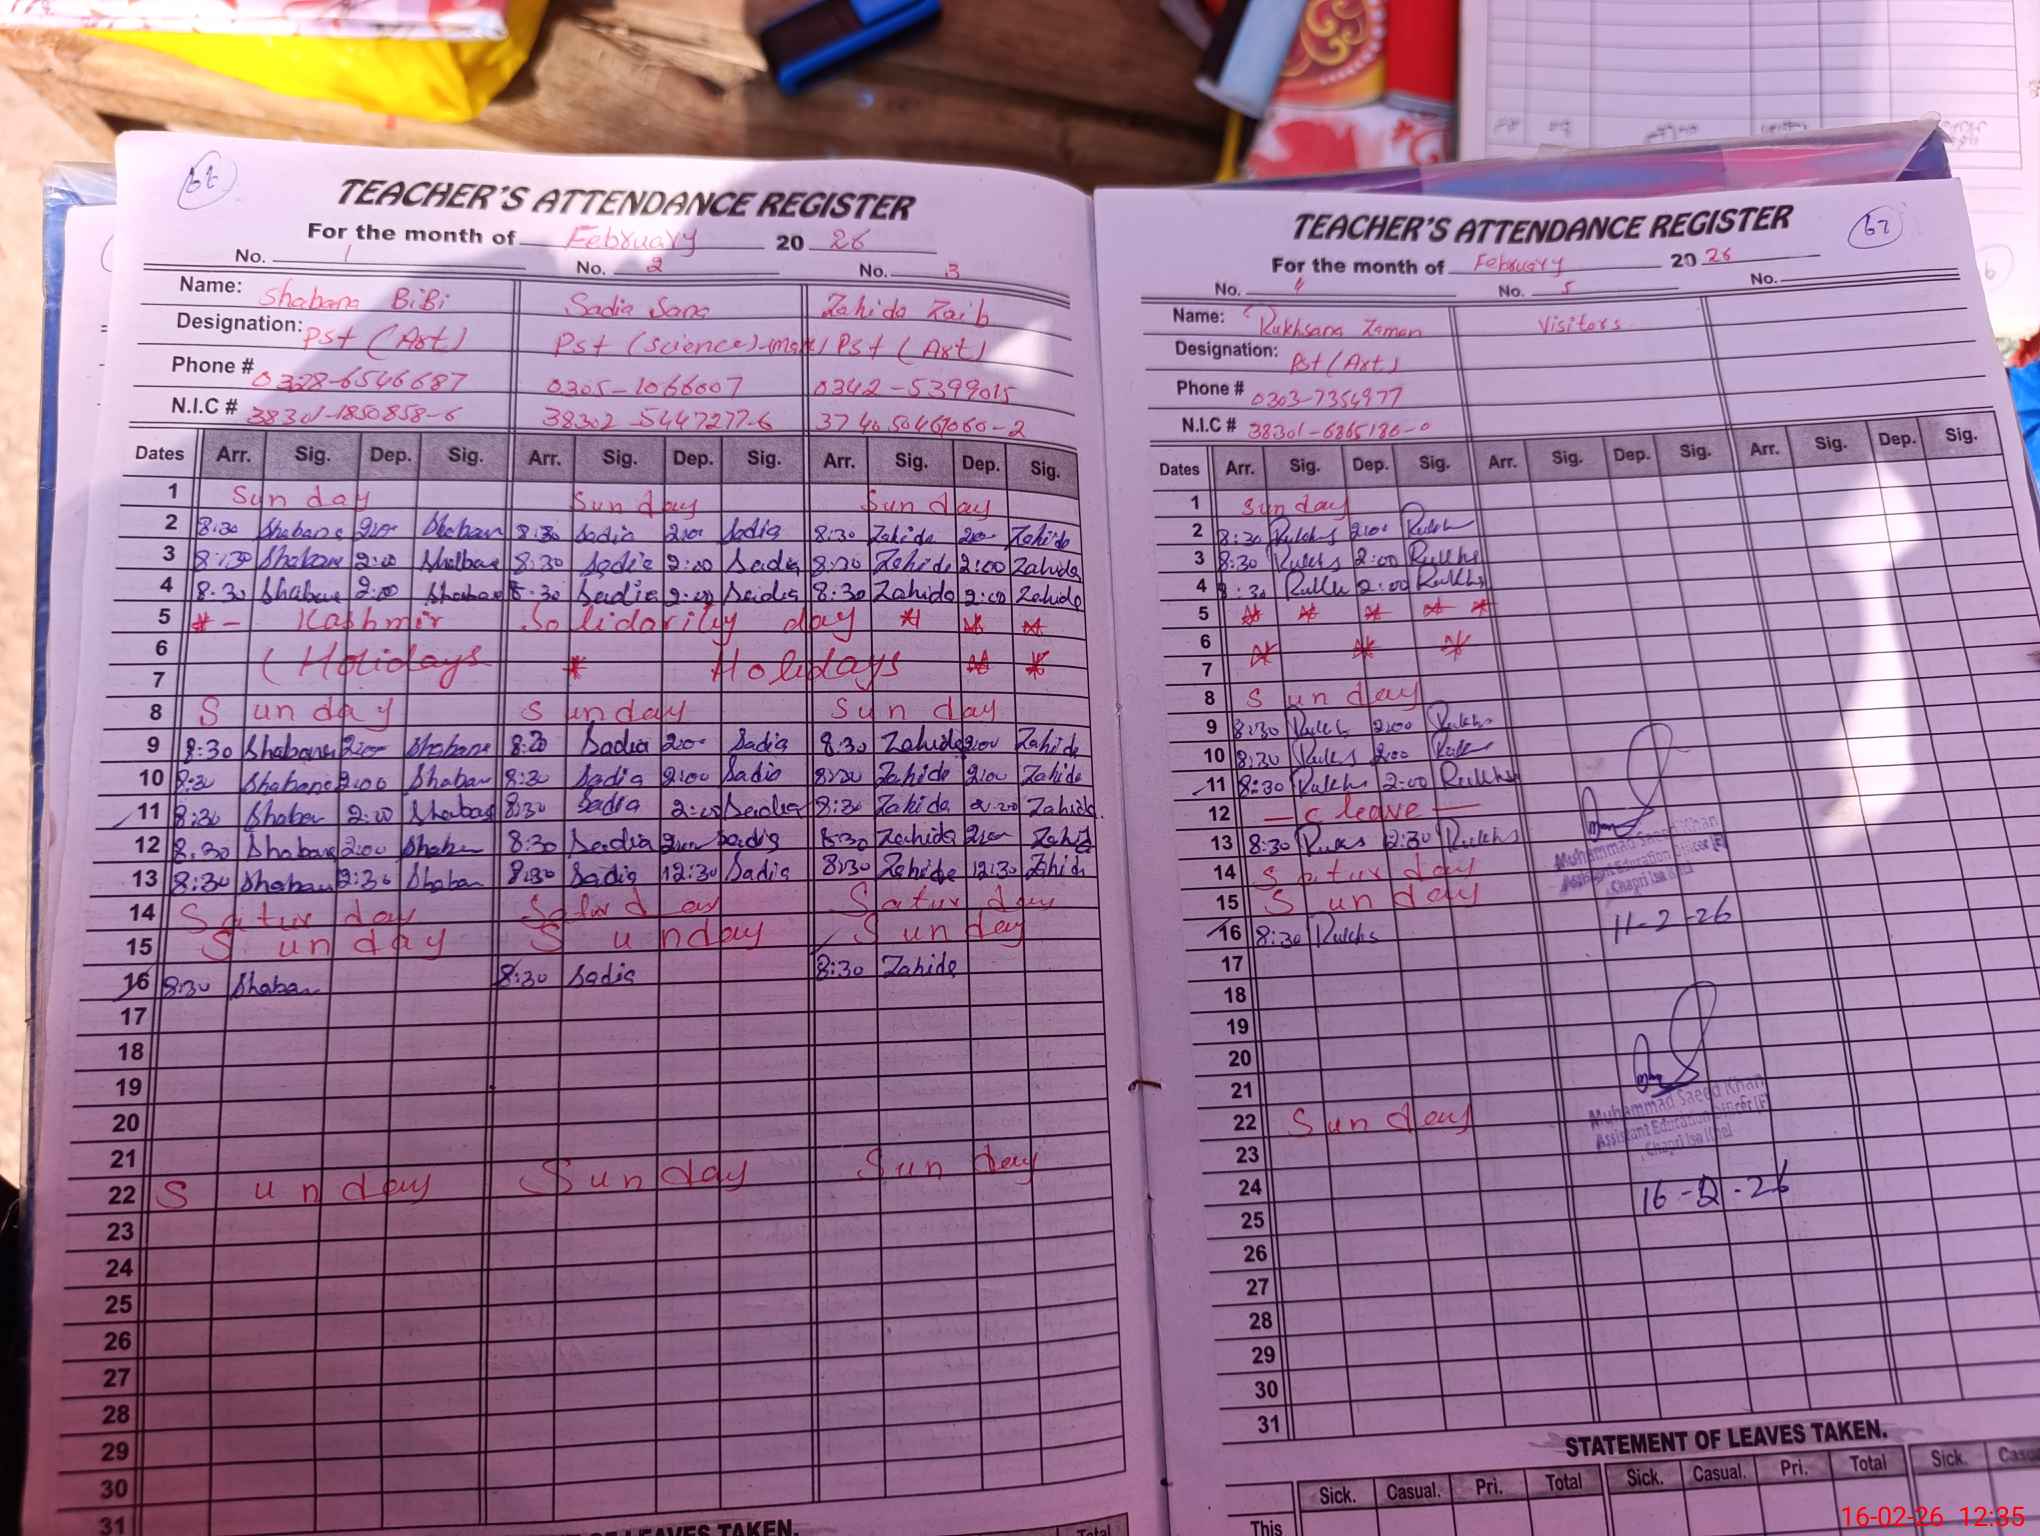 62
TEACHER'S ATTENDANCE REGISTER
For the month of February 2026
No. 1 No. 2 No. 3
Name: Shabana BiBi Sadia Sana Zahida Zaib
Designation: Pst (Art) Pst (science)-math Pst (Art)
Phone # 0328-6546687 0305-1066007 0342-5399015
N.I.C # 38301-1850858-6 38302-5447277-6
Dates Arr. Sig. Dep. Sig. Arr. Sig. Dep. Sig. Arr. Sig. Dep. Sig.
1 Sunday Sunday Sunday
2 8:30 Shabana 2:00 Shaban 8:30 Sadia 2:00 Sadia 8:30 Zahida 2:00 Zahida
3 8:30 Shabana 2:00 Shabana 8:30 Sadia 2:00 Sadia 8:30 Zahida 2:00 Zahida
4 8:30 Shabana 2:00 Shabana 8:30 Sadia 2:00 Sadia 8:30 Zahida 2:00 Zahida
5 * - Kashmir Solidarity day * * *
6
7 (Holidays * Holidays * *
8 Sunday Sunday Sunday
9 8:30 Shabana 2:00 Shabana 8:30 Sadia 2:00 Sadia 8:30 Zahida 2:00 Zahida
10 8:30 Shabana 2:00 Shaban 8:30 Sadia 2:00 Sadia 8:30 Zahida 2:00 Zahida
11 8:30 Shaban 2:00 Shabana 8:30 Sadia 2:00 Sadia 8:30 Zahida 2:00 Zahida
12 8:30 Shabana 2:00 Shaban 8:30 Sadia 2:00 Sadia 8:30 Zahida 2:00 Zahida
13 8:30 Shaban 2:30 Shaban 8:30 Sadia 12:30 Sadia 8:30 Zahida 12:30 Zahida
14 Saturday Saturday Saturday
15 Sunday Sunday Sunday
16 8:30 Shaban 8:30 Sadia 8:30 Zahida
17
18
19
20
21
22 Sunday Sunday Sunday
23
24
25
26
27
28
29
30
31
OF LEAVES TAKEN.
Total
62
TEACHER'S ATTENDANCE REGISTER
For the month of February 2026
No. 4 No. 5 No.
Name: Rukhsana Zaman Visitors
Designation: Pst (Art)
Phone # 0303-7354977
N.I.C # 38301-6865186-0
Dates Arr. Sig. Dep. Sig. Arr. Sig. Dep. Sig. Arr. Sig. Dep. Sig.
1 Sunday
2 8:30 Rukhs 2:00 Rukh
3 8:30 Rukhs 2:00 Rukhs
4 8:30 Rukh 2:00 Rukhs
5 * * * * *
6 * * *
7
8 Sunday
9 8:30 Rukh 2:00 Rukhs
10 8:30 Rukhs 2:00 Rukh
11 8:30 Rukhs 2:00 Rukhs
12 - c leave -
13 8:30 Rukhs 12:30 Rukhs
14 Saturday
15 Sunday
16 8:30 Rukhs
17
18
19
20
21
22 Sunday
23
24
25
26
27
28
29
30
31
Muhammad Saeed Khan
Assistant Education Officer (F)
Chapri Isa Khel
11-2-26
Muhammad Saeed Khan
Assistant Education Officer (F)
Chapri Isa Khel
16-2-26
STATEMENT OF LEAVES TAKEN.
Sick. Casual. Pri. Total Sick. Casual. Pri. Total Sick.
This
16-02-26 12:35